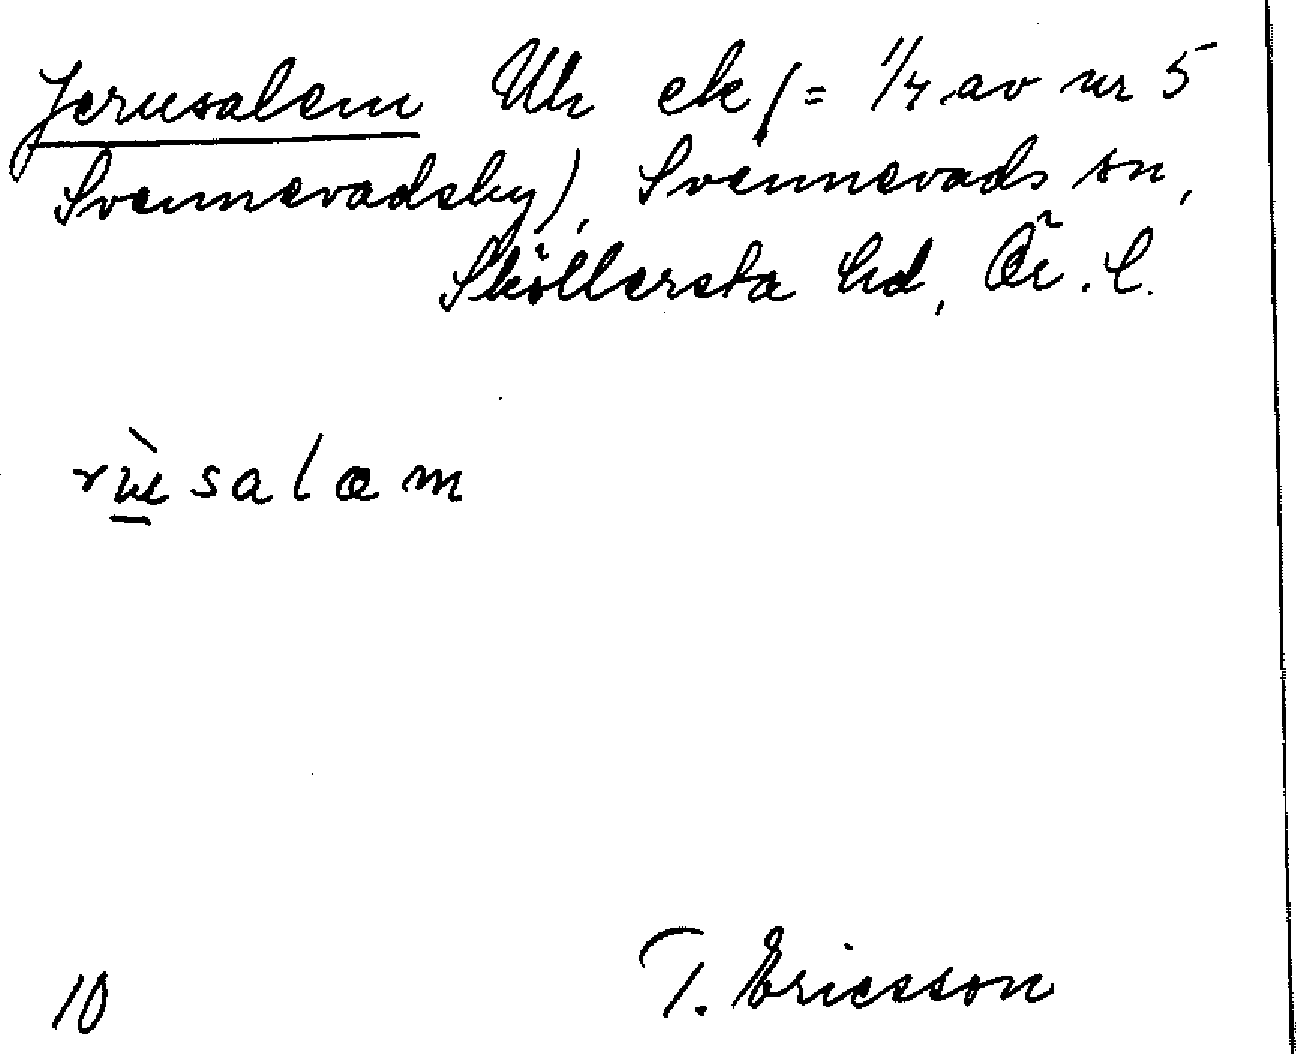 Jerusalem Uh ek (= 1/4 av nr 5
Svennevadsby), Svennevads sn,
Sköllersta hd, Ör. l.
rùsalam
10 T. Ericsson